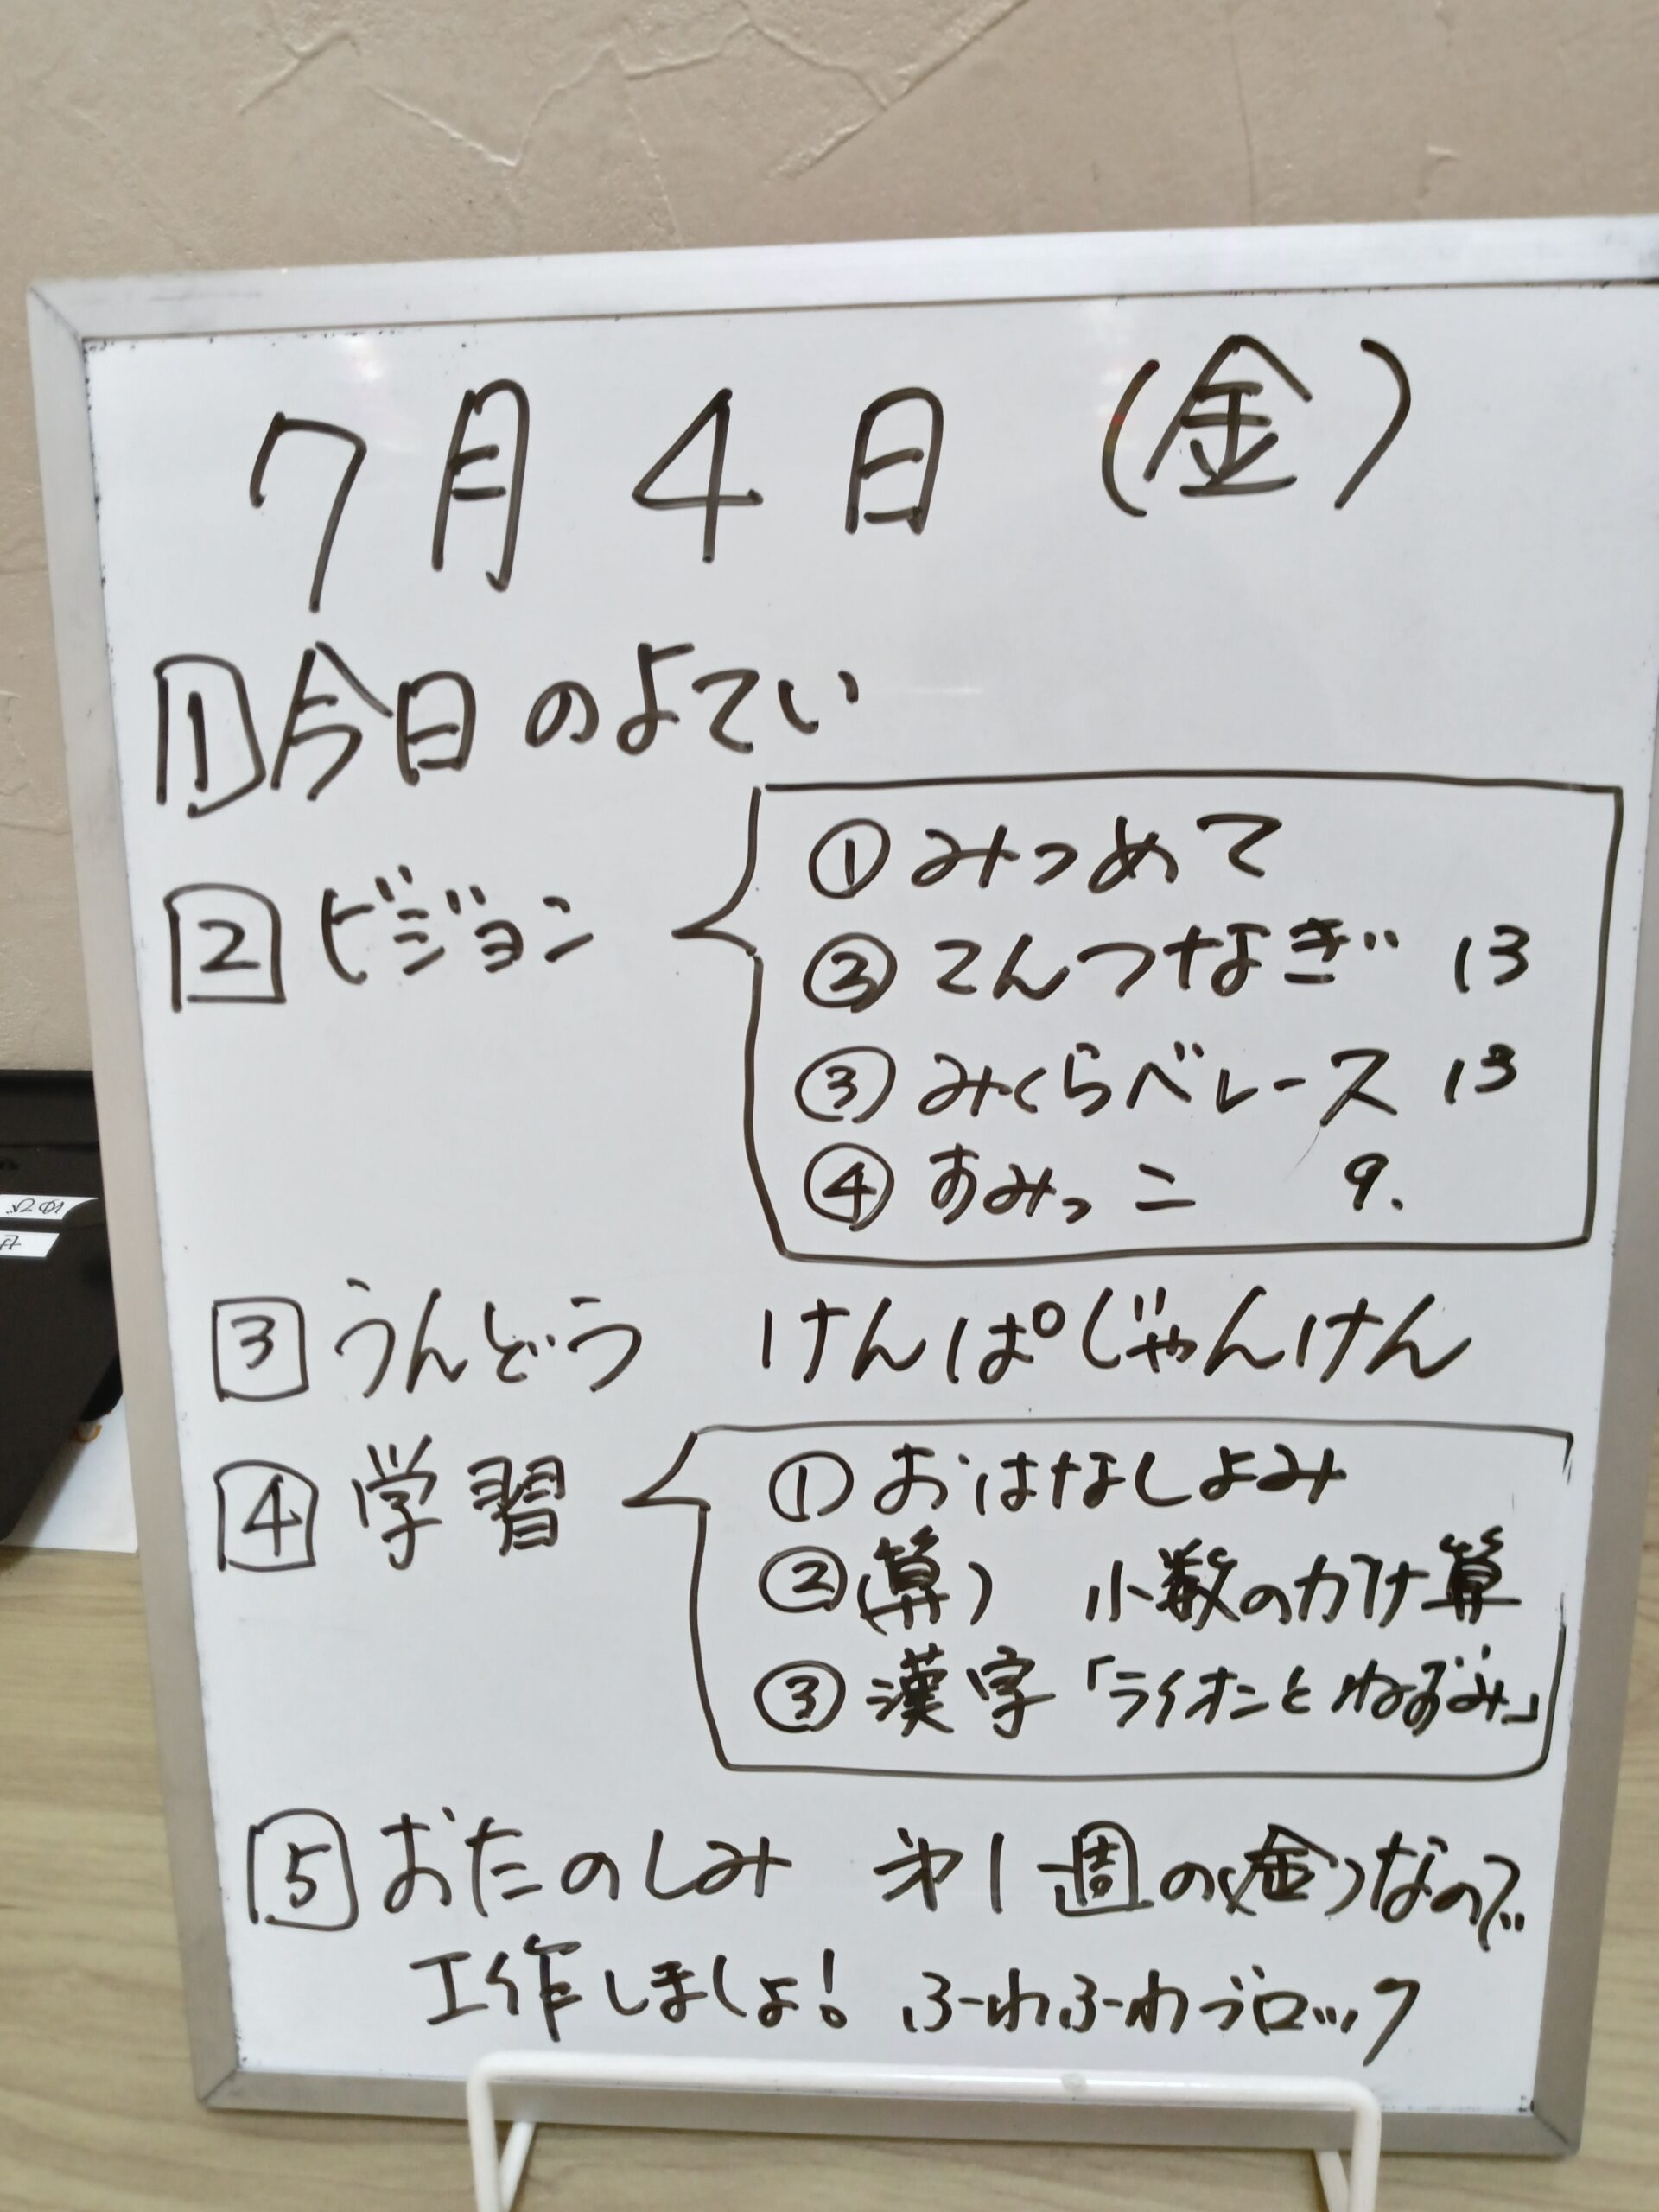 7月4日 (金)
1 今日のよてい
2 ビジョン
① みつめて
② てんつなぎ 13
③ みくらべレース 13
④ すみっこ 9.
3 うんどう けんぱじゃんけん
4 学習
① おはなしよみ
② (算) 小数のカケ算
③ 漢字「ライオンとねずみ」
5 おたのしみ 第1週の(金)なので
工作しましょ! ふーわふーわブロック